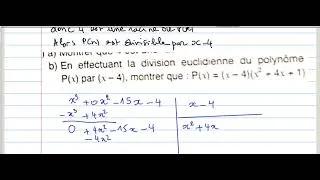 donc 4 est une racine de P(x)
Alors P(x) est divisible par x-4
b) En effectuant la division euclidienne du polynôme
P(x) par (x − 4), montrer que : P(x) = (x − 4)(x² + 4x + 1)
x³ + 0x² - 15x - 4 | x - 4
-x³ + 4x² | x² + 4x
0 + 4x² - 15x - 4
- 4x²